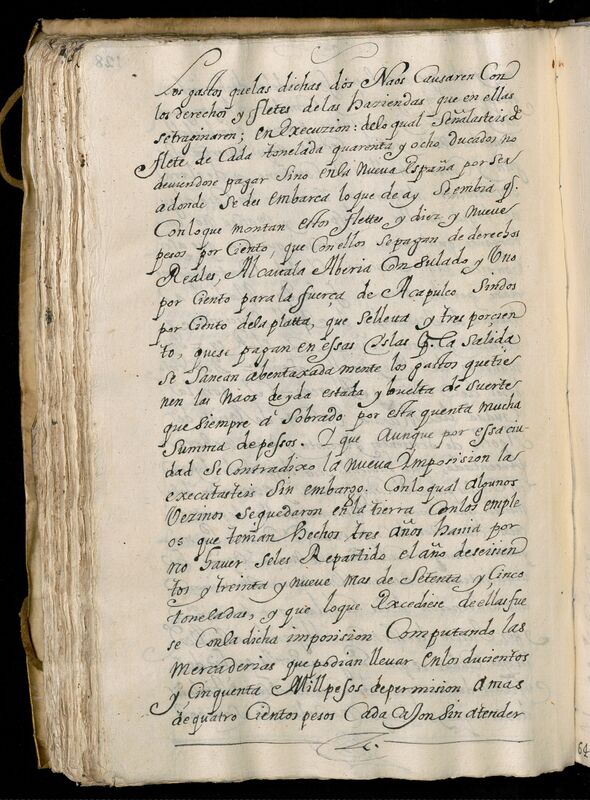 Los gastos quelas dichas dos Naos Causaren Con
los derechos y fletes de las haziendas que en ellas
setraginaren; en Execuzion: delo qual Señalasteis de
flete de Cada tonelada quarenta y ocho ducados no
deviendose pagar Sino enla Nueva España por ser
adonde se des embarca lo que de ay Se embia q.
Conloque montan estos flettes y diez y Nueve
pesos por Ciento, que Conellos sepagan de derechos
Reales, Alcavala Aberia Consulado y Uno
por Ciento para la fuerca de Acapulco Sindos
por Ciento dela platta, que selleva y tres porcien
to, quese pagan en essas Islas La Salida
se Sanean abentaxadamente los gastos quetie
nen las Naos de yda estada, y buelta de Suerte
que siempre a Sobrado por esta quenta mucha
Summa de pessos. Y que Aunque por essa ciu
dad se Contradixo la nueva Imposision las
executasteis Sin embargo. Conlo qual algunos
Vezinos sequedaron en la tierra Conlos emple
os que tenian hechos tres años havia por
no haver seles Repartido el año deseiscien
tos y treinta y nueve mas de Setenta y Cinco
toneladas, y que loque Excediese deellas fue
se Conla dicha imposision Computando las
Mercaderias que podian llevar enlos ducientos
y Cinquenta Mill pesos depermision amas
de quatro Cientos pesos Cada Cajon Sin atender
64